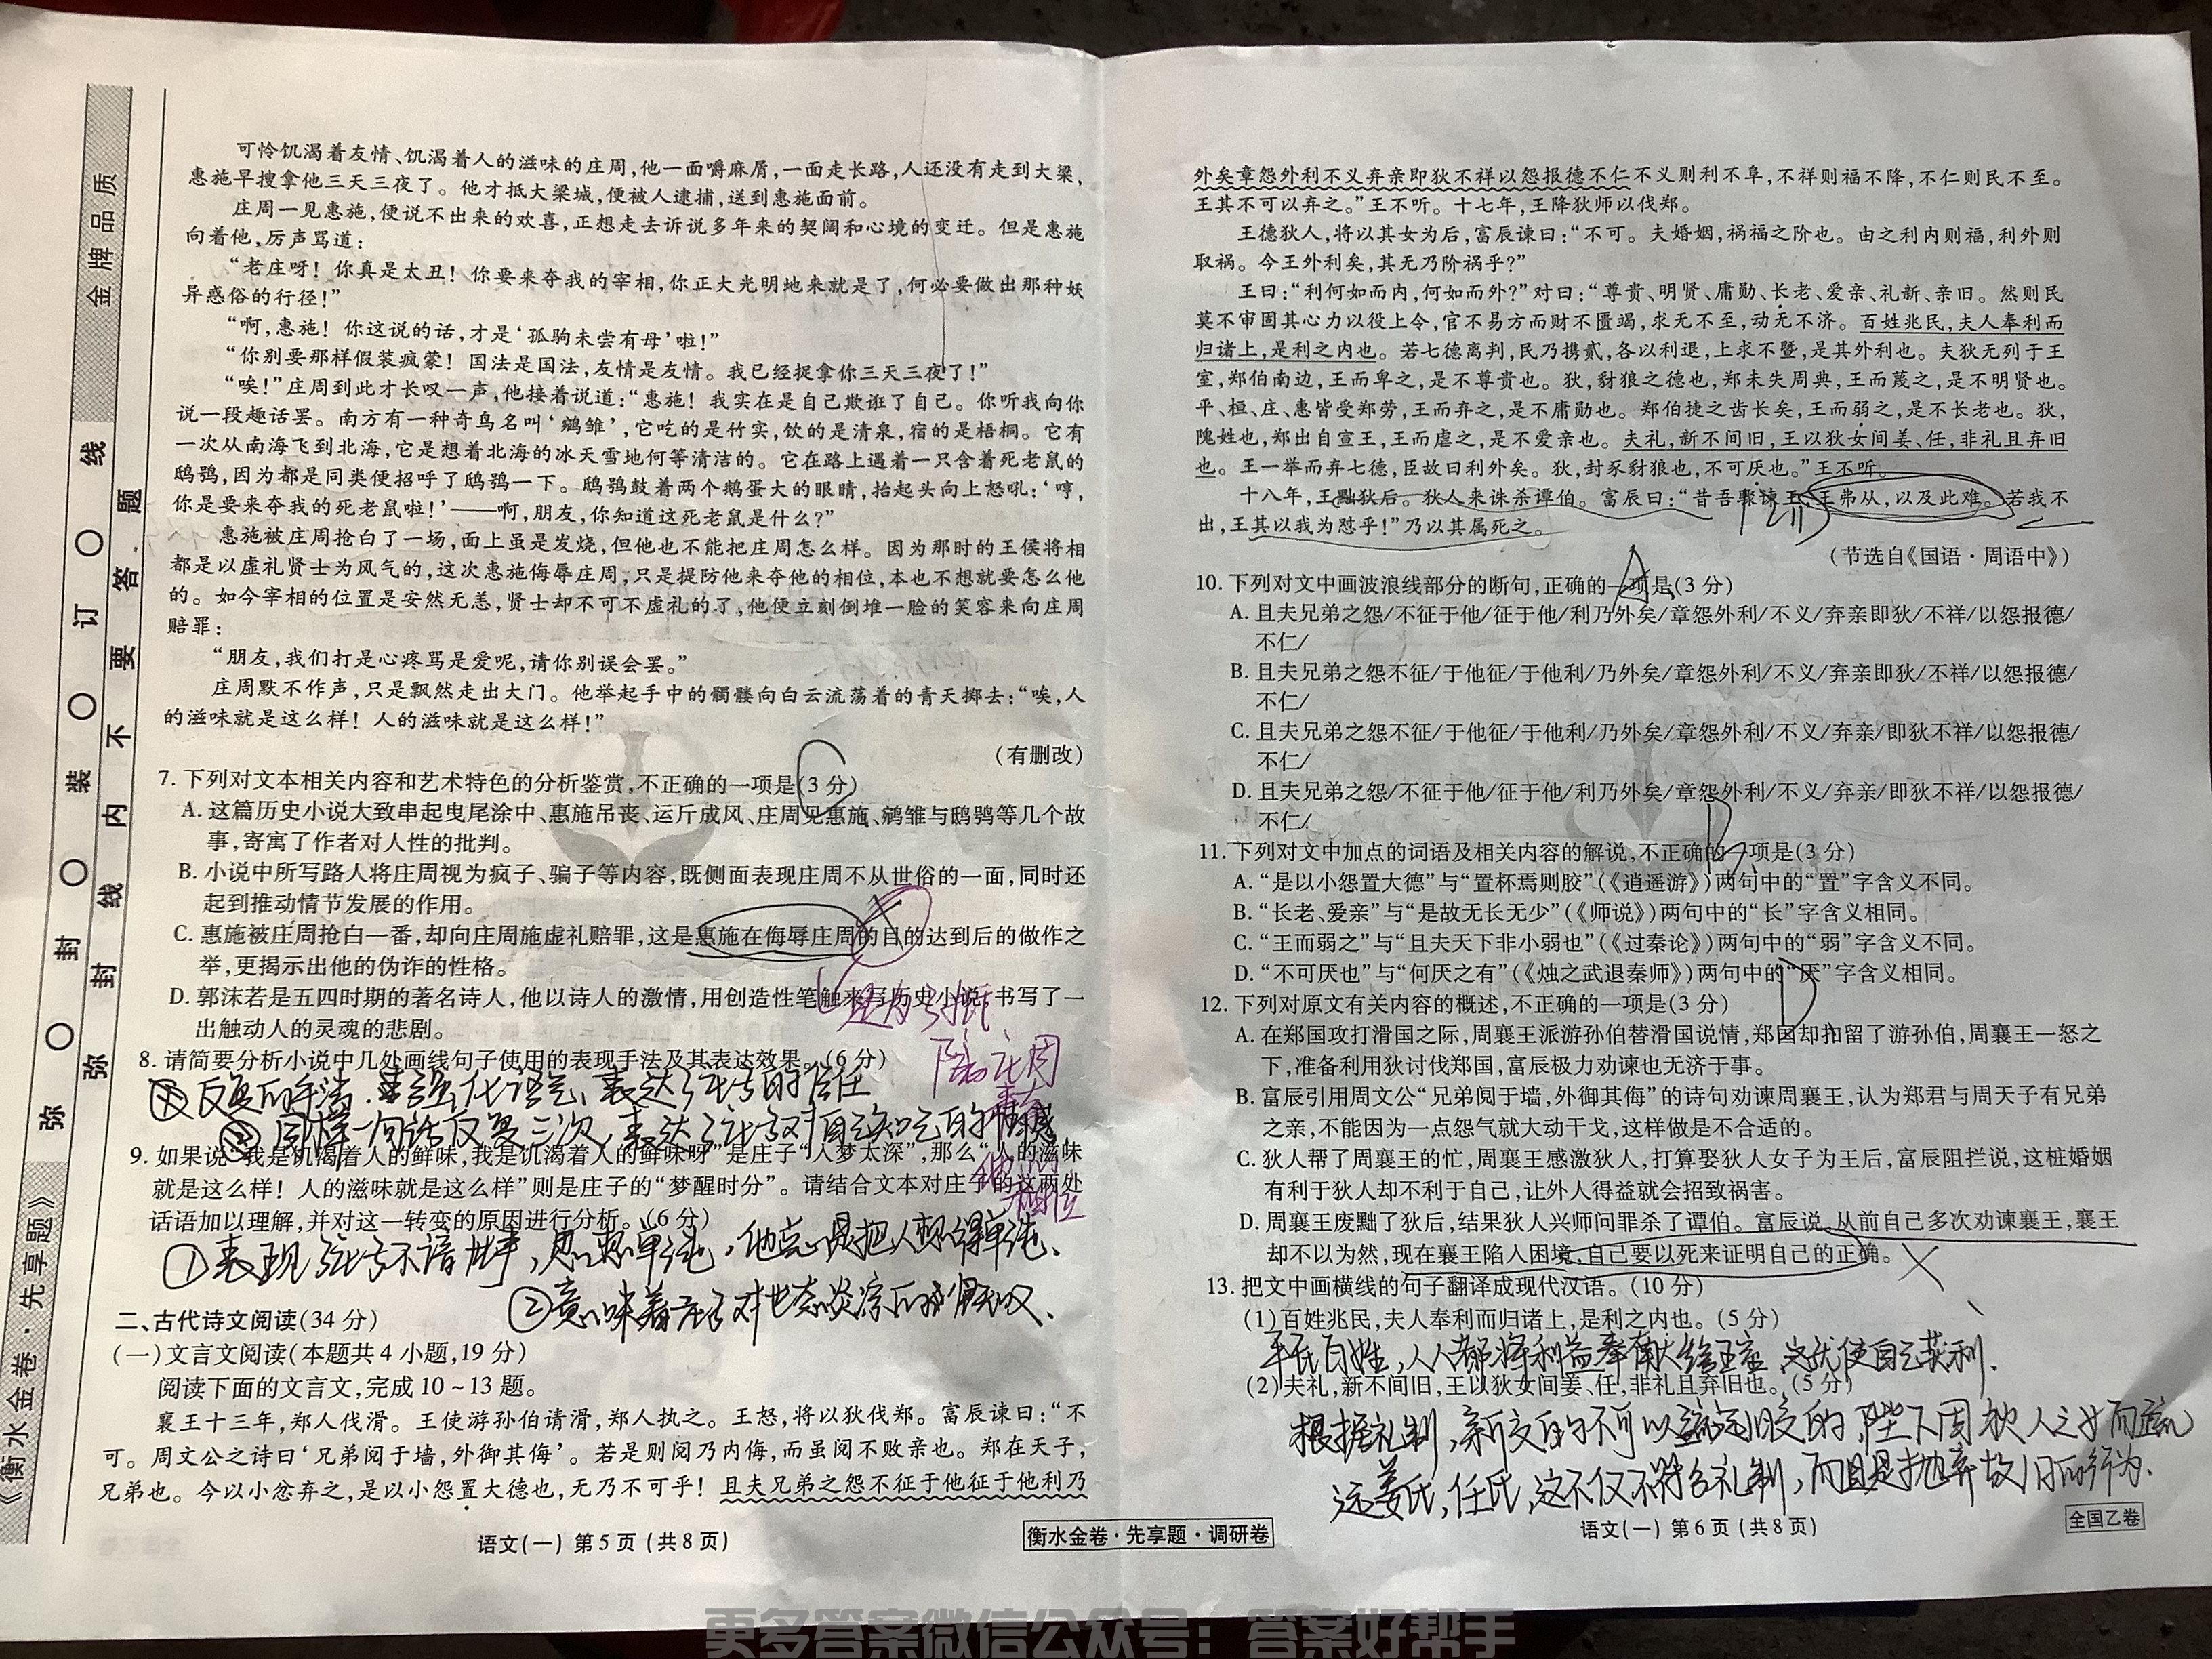 金牌品质
弥 封 装 订 线
弥 封 线 内 不 要 答 题
《衡水金卷·先享题》
可怜饥渴着友情、饥渴着人的滋味的庄周,他一面嚼麻屑,一面走长路,人还没有走到大梁,
惠施早搜拿他三天三夜了。他才抵大梁城,便被人逮捕,送到惠施面前。
庄周一见惠施,便说不出来的欢喜,正想走去诉说多年来的契阔和心境的变迁。但是惠施
向着他,厉声骂道:
“老庄呀！你真是太丑！你要来夺我的宰相,你正大光明地来就是了,何必要做出那种妖
异惑俗的行径！”
“啊,惠施！你这说的话,才是‘孤驹未尝有母’啦！”
“你别要那样假装疯蒙！国法是国法,友情是友情。我已经捉拿你三天三夜了！”
“唉！”庄周到此才长叹一声,他接着说道:“惠施！我实在是自己欺诳了自己。你听我向你
说一段趣话罢。南方有一种奇鸟名叫‘鹓雏’,它吃的是竹实,饮的是清泉,宿的是梧桐。它有
一次从南海飞到北海,它是想着北海的冰天雪地何等清洁的。它在路上遇着一只含着死老鼠的
鸱鸮,因为都是同类便招呼了鸱鸮一下。鸱鸮鼓着两个鹅蛋大的眼睛,抬起头向上怒吼:‘哼,
你是要来夺我的死老鼠啦！’——啊,朋友,你知道这死老鼠是什么?”
惠施被庄周抢白了一场,面上虽是发烧,但他也不能把庄周怎么样。因为那时的王侯将相
都是以虚礼贤士为风气的,这次惠施侮辱庄周,只是提防他来夺他的相位,本也不想就要怎么他
的。如今宰相的位置是安然无恙,贤士却不可不虚礼的了,他便立刻倒堆一脸的笑容来向庄周
赔罪:
“朋友,我们打是心疼骂是爱呢,请你别误会罢。”
庄周默不作声,只是飘然走出大门。他举起手中的髑髅向白云流荡着的青天掷去:“唉,人
的滋味就是这么样！人的滋味就是这么样！”
(有删改)
7. 下列对文本相关内容和艺术特色的分析鉴赏,不正确的一项是(3 分)
C
A. 这篇历史小说大致串起曳尾涂中、惠施吊丧、运斤成风、庄周见惠施、鹓雏与鸱鸮等几个故
事,寄寓了作者对人性的批判。
B. 小说中所写路人将庄周视为疯子、骗子等内容,既侧面表现庄周不从世俗的一面,同时还
起到推动情节发展的作用。
C. 惠施被庄周抢白一番,却向庄周施虚礼赔罪,这是惠施在侮辱庄周的目的达到后的做作之
举,更揭示出他的伪诈的性格。
D. 郭沫若是五四时期的著名诗人,他以诗人的激情,用创造性笔触来写历史小说,书写了一
出触动人的灵魂的悲剧。
是为了提
防庄周
来夺
他的
相位
8. 请简要分析小说中几处画线句子使用的表现手法及其表达效果。(6 分)
反复的手法,强化语气,表达了庄子的信任
② 同样一句话反复三次,表达了庄子对自己知己的情感
9. 如果说“我是饥渴着人的鲜味,我是饥渴着人的鲜味呀”是庄子“人梦太深”,那么“人的滋味
就是这么样！人的滋味就是这么样”则是庄子的“梦醒时分”。请结合文本对庄子的这两处
话语加以理解,并对这一转变的原因进行分析。(6 分)
①表现了庄子不谙世事,思想单纯,他总是把人想得单纯、
②意味着庄子对世态炎凉的感叹、
二、古代诗文阅读(34 分)
(一)文言文阅读(本题共 4 小题,19 分)
阅读下面的文言文,完成 10~13 题。
襄王十三年,郑人伐滑。王使游孙伯请滑,郑人执之。王怒,将以狄伐郑。富辰谏曰:“不
可。周文公之诗曰‘兄弟阋于墙,外御其侮’。若是则阋乃内侮,而虽阋不败亲也。郑在天子,
兄弟也。今以小忿弃之,是以小怨置大德也,无乃不可乎！且夫兄弟之怨不征于他征于他利乃
语文(一) 第 5 页 (共 8 页)
衡水金卷·先享题·调研卷
外矣章怨外利不义弃亲即狄不祥以怨报德不仁不义则利不阜,不祥则福不降,不仁则民不至。
王其不可以弃之。”王不听。十七年,王降狄师以伐郑。
王德狄人,将以其女为后,富辰谏曰:“不可。夫婚姻,祸福之阶也。由之利内则福,利外则
取祸。今王外利矣,其无乃阶祸乎?”
王曰:“利何如而内,何如而外?”对曰:“尊贵、明贤、庸勋、长老、爱亲、礼新、亲旧。然则民
莫不审固其心力以役上令,官不易方而财不匮竭,求无不至,动无不济。百姓兆民,夫人奉利而
归诸上,是利之内也。若七德离判,民乃携贰,各以利退,上求不暨,是其外利也。夫狄无列于王
室,郑伯南边,王而卑之,是不尊贵也。狄,豺狼之德也,郑未失周典,王而蔑之,是不明贤也。
平、桓、庄、惠皆受郑劳,王而弃之,是不庸勋也。郑伯捷之齿长矣,王而弱之,是不长老也。狄,
隗姓也,郑出自宣王,王而虐之,是不爱亲也。夫礼,新不间旧,王以狄女间姜、任,非礼且弃旧
也。王一举而弃七德,臣故曰利外矣。狄,封豕豺狼也,不可厌也。”王不听。
十八年,王黜狄后。狄人来诛杀谭伯。富辰曰:“昔吾骤谏王,王弗从,以及此难。若我不
出,王其以我为怼乎！”乃以其属死之。
(节选自《国语·周语中》)
10. 下列对文中画波浪线部分的断句,正确的一项是(3 分)
A
A. 且夫兄弟之怨/不征于他/征于他/利乃外矣/章怨外利/不义/弃亲即狄/不祥/以怨报德/
不仁/
B. 且夫兄弟之怨不征/于他征/于他利/乃外矣/章怨外利/不义/弃亲即狄/不祥/以怨报德/
不仁/
C. 且夫兄弟之怨不征/于他征/于他利/乃外矣/章怨外利/不义/弃亲/即狄不祥/以怨报德/
不仁/
D. 且夫兄弟之怨/不征于他/征于他/利乃外矣/章怨外利/不义/弃亲/即狄不祥/以怨报德/
不仁/
11. 下列对文中加点的词语及相关内容的解说,不正确的一项是(3 分)
B
A. “是以小怨置大德”与“置杯焉则胶”(《逍遥游》)两句中的“置”字含义不同。
B. “长老、爱亲”与“是故无长无少”(《师说》)两句中的“长”字含义相同。
C. “王而弱之”与“且夫天下非小弱也”(《过秦论》)两句中的“弱”字含义不同。
D. “不可厌也”与“何厌之有”(《烛之武退秦师》)两句中的“厌”字含义相同。
12. 下列对原文有关内容的概述,不正确的一项是(3 分)
D
A. 在郑国攻打滑国之际,周襄王派游孙伯替滑国说情,郑国却扣留了游孙伯,周襄王一怒之
下,准备利用狄讨伐郑国,富辰极力劝谏也无济于事。
B. 富辰引用周文公“兄弟阋于墙,外御其侮”的诗句劝谏周襄王,认为郑君与周天子有兄弟
之亲,不能因为一点怨气就大动干戈,这样做是不合适的。
C. 狄人帮了周襄王的忙,周襄王感激狄人,打算娶狄人女子为王后,富辰阻拦说,这桩婚姻
有利于狄人却不利于自己,让外人得益就会招致祸害。
D. 周襄王废黜了狄后,结果狄人兴师问罪杀了谭伯。富辰说,从前自己多次劝谏襄王,襄王
却不以为然,现在襄王陷入困境,自己要以死来证明自己的正确。
13. 把文中画横线的句子翻译成现代汉语。(10 分)
(1)百姓兆民,夫人奉利而归诸上,是利之内也。(5 分)
平民百姓,人人都将利益奉献给王室 这就使自己获利、
(2)夫礼,新不间旧,王以狄女间姜、任,非礼且弃旧也。(5 分)
根据礼制,新交的不可以疏远旧交的,陛下因狄人之女而疏
远姜氏,任氏,这不仅不符合礼制,而且是抛弃故旧的行为、
语文(一) 第 6 页 (共 8 页)
全国乙卷
更多答案微信公众号：答案好帮手